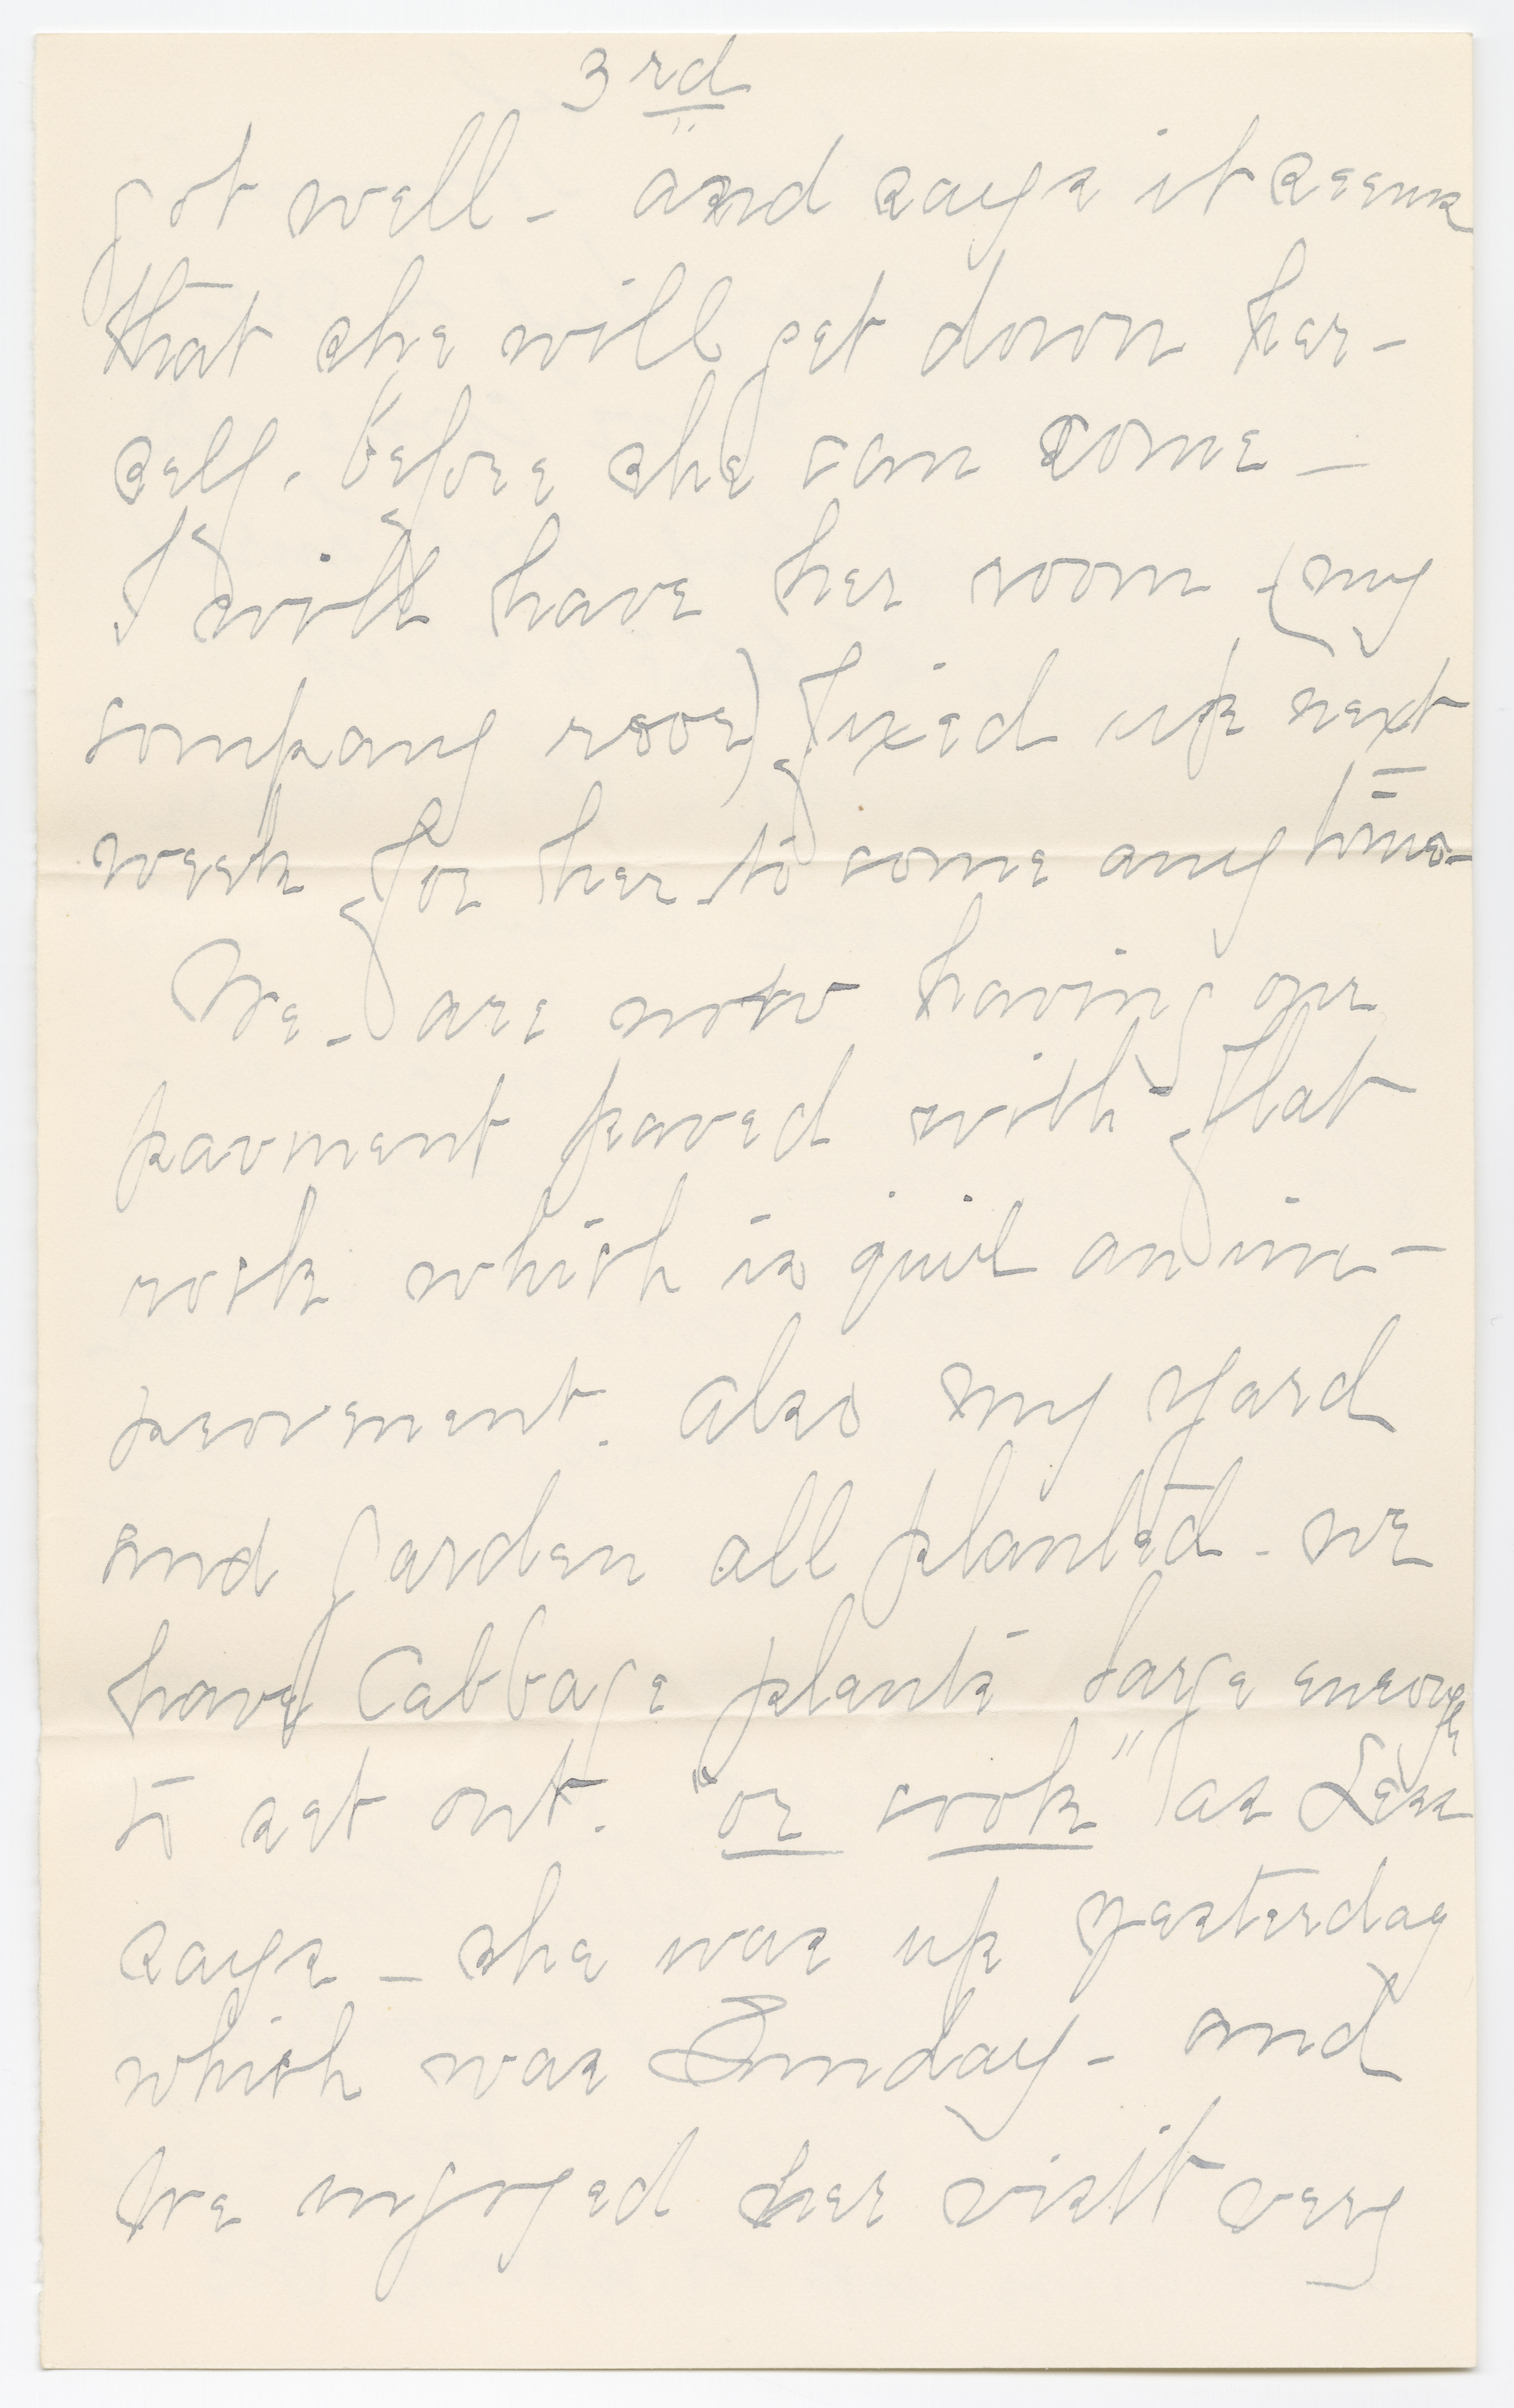 3rd
got well - and says it seems
that she will get down her-
self, before she can come -
I will have her room (my
company room) fixed up next
week for her to come any time-
We - are now having our
pavment paved with flat
rock which is quit an im-
provement. Also my yard
and garden all planted - we
have Cabbage plants large enough
to set out. "or cook" as Less
says - she was up yesterday
which was Sunday - and
we injoyed her visit very